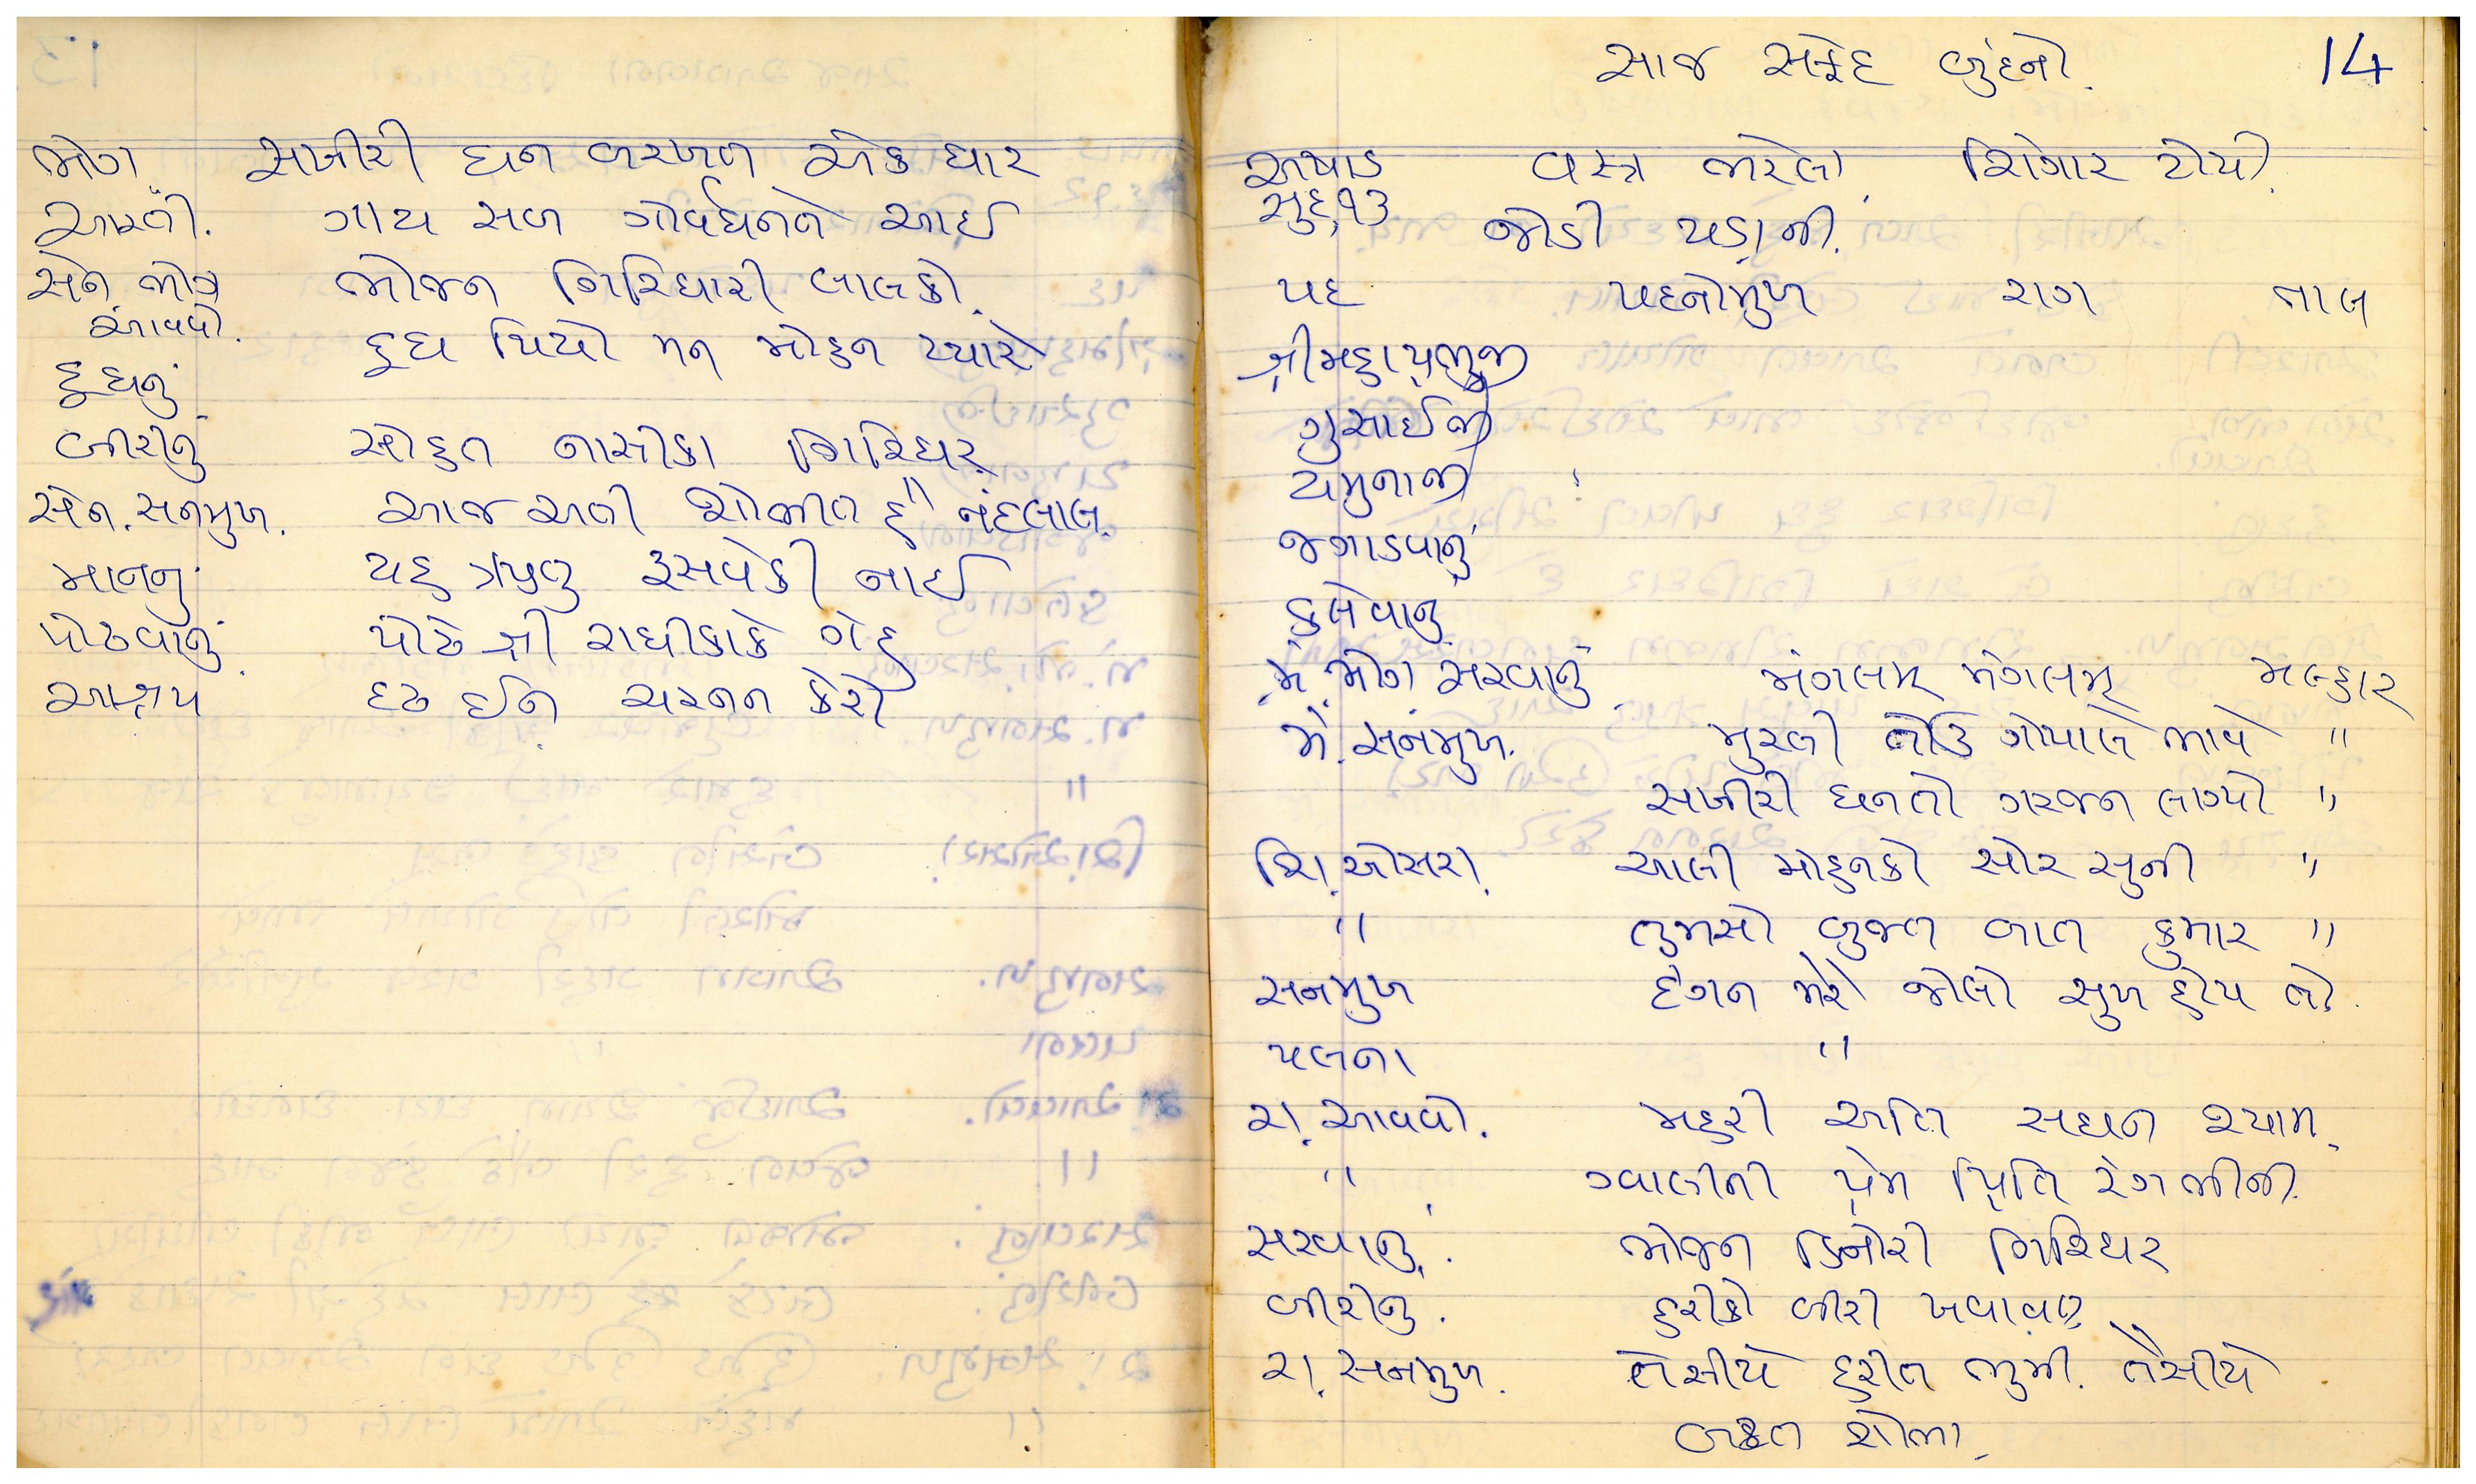 ભોગ સખીરી ઘન બરખત એક ધાર
આરતી. ગાય સબ ગોવર્ધનતે આઈ
સેન ભોગ ભોજન ગિરિધારી લાલકો.
આવવો.
દુધ પિયો મન મોહન પ્યારે
દુધનું
બીરીનું સોહત નાસીકા ગિરિધર
સેન. સનમુખ. આજ અતી શોભીત હૈ નંદલાલ.
માનનું યહ રૂસવેકી નાઈ
પોઢવાનું પોઢે શ્રી રાધીકાકે ગેહ
આશ્રય દ્રઢ ઈન ચરનન કેરો
સાજ સફેદ બુંદનો. 14
અષાડ વસ્ત્ર ભરેલા, શિંગાર ટોપી.
સુદ,૧૩ જોડી પડાની.
પદ પદનોમુખ રાગ તાલ
શ્રીમહાપ્રભુજી
ગુસાઈજી
યમુનાજી
જગાડવાનું
કલેવાનું
મં. ભોગ સરવાનું મંગલમ્ મંગલમ્ મલ્હાર
મં. સનમુખ. મુરલી ગોપાલે ભાવે "
સખીરી ઘનતો ગરજન લાગ્યો "
શિ. ઓસરા. આલી મોહનકો સોર સુની "
" તુમસો બુજત બાત કુમાર "
સનમુખ મેરો જોલો સુખ હોય તો.
પલના "
રા. આવવો. મહરી અતિ સઘન શ્યામ.
" ગ્વાલીની પ્રેમ પ્રિતિ રંગ ભીની.
સરવાનું. ભોજન કિનોરી ગિરિધર
બીરીનું. હરીકો બીરી ખવાવત
રા. સનમુખ. તેસીયે હરીત ભુમી. તૈસીયે
શોભા.